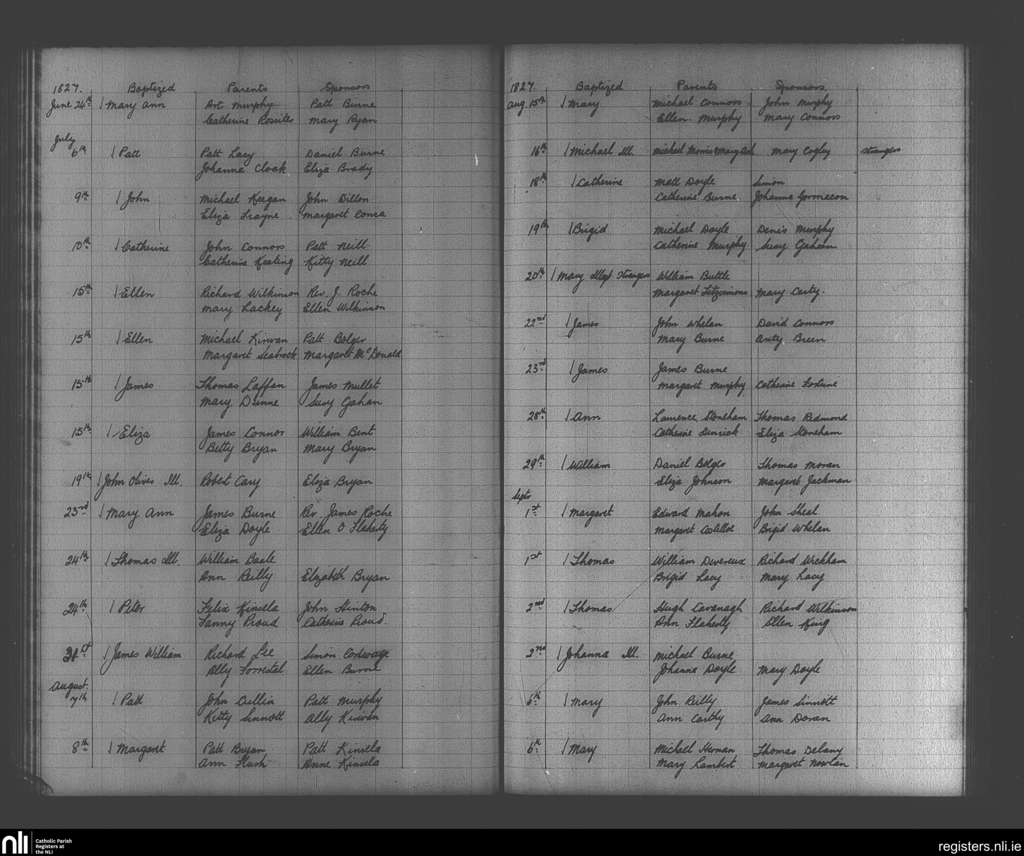 1827. Baptized Parents Sponsors
June 24th Mary Ann Art Murphy Patt Burne
Catherine Rossiter Mary Ryan
July
6th Patt Patt Lacy Daniel Burne
Johanna Cloak Eliza Brady
9th John Michael Keegan John Dillon
Eliza Margaret
10th Catherine John Connors Patt Neill
Catherine Keating Kitty Neill
15th Ellen Richard Wilkinson Rev. J. Roche
Mary Lackey Ellen Wilkinson
15th Ellen Michael Kirwan Patt Bolger
Margaret Margaret McDonald
15th James Thomas Laffan James Mullet
Mary Dunne Susy Gahan
15th Eliza James Connor William Bent
Betty Bryan Mary Bryan
19th John Oliver Ill. Robert Cary Eliza Bryan
23rd Mary Ann James Burne Rev. James Roche
Eliza Doyle Ellen O Flaherty
24th Thomas Ill. William
Ann Reilly Elizabeth Bryan
24th Peter Felix Kinsela John Hinton
Fanny Proud Catherine Proud
31st James William Richard Lee Simon
Ally Forrestal Ellen Burne
August
7th Patt John Cullin Patt Murphy
Kitty Sinnott Ally Kirwan
8th Margaret Patt Bryan Patt Kinsela
Ann Anne Kinsela
1827. Baptized Parents Sponsors
Aug. 15th Mary Michael Connors John Murphy
Ellen Murphy Mary Connors
16th Michael Ill. Michael Mary Cogley Strangers
18th Catherine Matt Doyle Simon
Catherine Burne Johanna
19th Brigid Michael Doyle Denis Murphy
Catherine Murphy Susy Gahan
20th Mary Strangers William Buttle
Margaret Fitzsimons Mary Carty.
22nd James John Whelan David Connors
Mary Burne Anty Breen
23rd James James Burne
Margaret Murphy Catherine Fortune
28th Ann Laurence Stoneham Thomas Redmond
Catherine Eliza Stoneham
29th William Daniel Bolger Thomas Moran
Eliza Johnson Margaret Jackman
Septr
1st Margaret Edward Mahon John Sheal
Margaret Brigid Whelan
1st Thomas William Devereux Richard Wickham
Brigid Lacy Mary Lacy
2nd Thomas Hugh Cavanagh Richard Wilkinson
Ann Flaherty Ellen King
2nd Johanna Ill. Michael Burne
Johanna Doyle Mary Doyle
6th Mary John Reilly James Sinnott
Ann Carthy Ann Doran
6th Mary Michael Thomas Delany
Mary Lambert Margaret Nowlan
nli Catholic Parish
Registers at
the NLI
registers.nli.ie